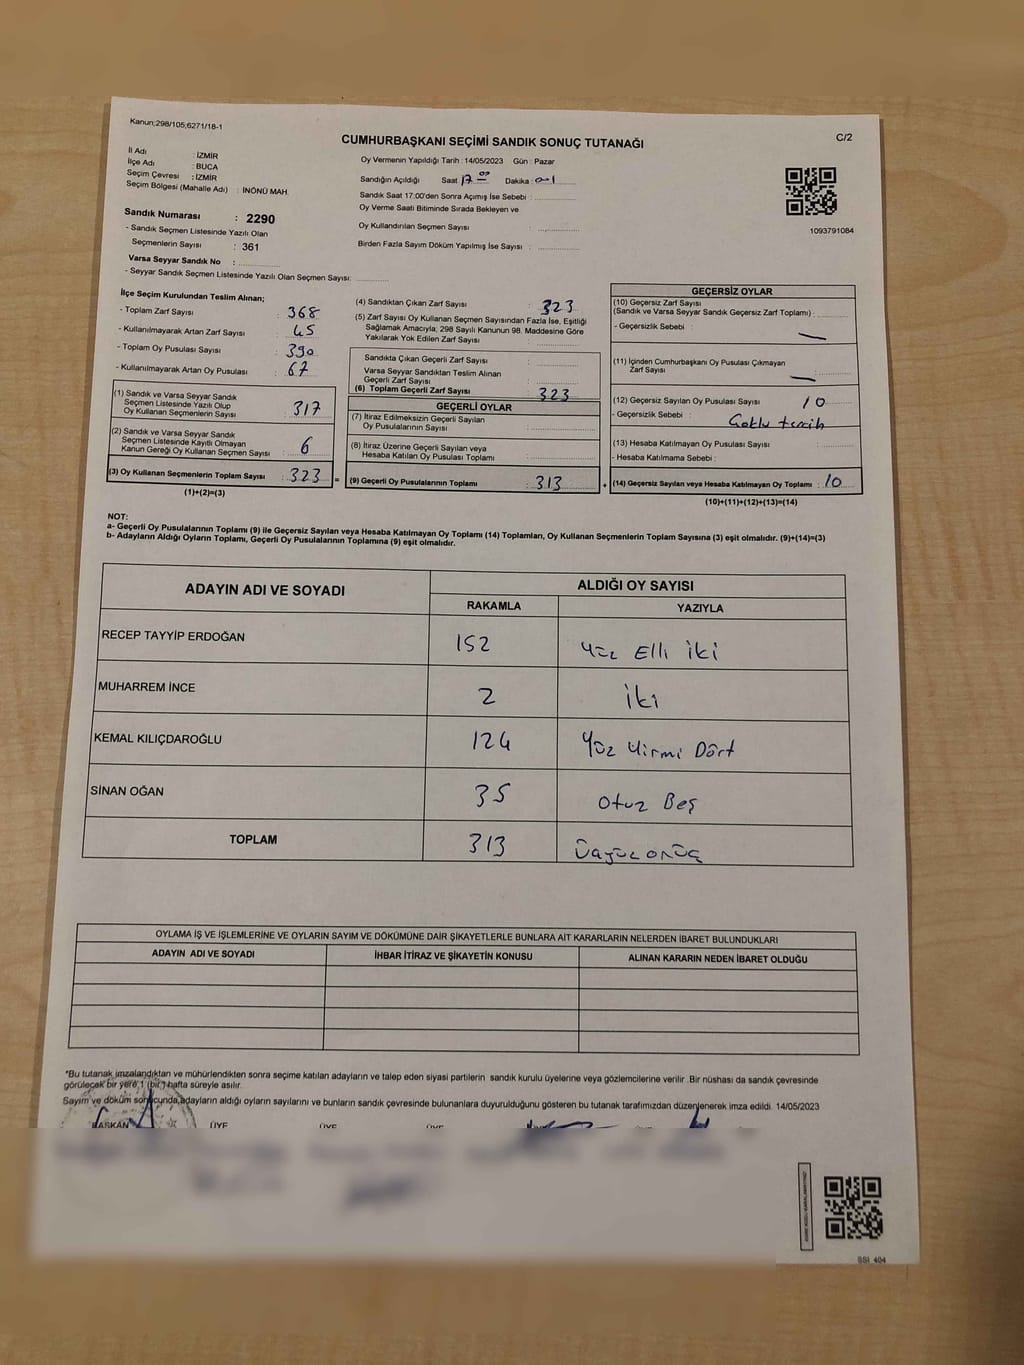 Kanun;298/105;6271/18-1
C/2
CUMHURBAŞKANI SEÇİMİ SANDIK SONUÇ TUTANAĞI
İl Adı : İZMİR
İlçe Adı : BUCA
Seçim Çevresi : İZMİR
Seçim Bölgesi (Mahalle Adı) : İNÖNÜ MAH.
Sandık Numarası : 2290
- Sandık Seçmen Listesinde Yazılı Olan
Seçmenlerin Sayısı : 361
Varsa Seyyar Sandık No :
- Seyyar Sandık Seçmen Listesinde Yazılı Olan Seçmen Sayısı:
Oy Vermenin Yapıldığı Tarih : 14/05/2023 Gün : Pazar
Sandığın Açıldığı Saat 17 00 Dakika :
Sandık Saat 17:00'den Sonra Açımış İse Sebebi :
Oy Verme Saati Bitiminde Sırada Bekleyen ve
Oy Kullandırılan Seçmen Sayısı :
Birden Fazla Sayım Döküm Yapılmış İse Sayısı :
1093791084
İlçe Seçim Kurulundan Teslim Alınan;
- Toplam Zarf Sayısı : 368
- Kullanılmayarak Artan Zarf Sayısı : 45
- Toplam Oy Pusulası Sayısı : 390
- Kullanılmayarak Artan Oy Pusulası : 67
(1) Sandık ve Varsa Seyyar Sandık
Seçmen Listesinde Yazılı Olup
Oy Kullanan Seçmenlerin Sayısı : 317
(2) Sandık ve Varsa Seyyar Sandık
Seçmen Listesinde Kayıtlı Olmayan
Kanun Gereği Oy Kullanan Seçmen Sayısı : 6
(3) Oy Kullanan Seçmenlerin Toplam Sayısı : 323
(1)+(2)=(3)
=
(4) Sandıktan Çıkan Zarf Sayısı : 323
(5) Zarf Sayısı Oy Kullanan Seçmen Sayısından Fazla İse, Eşitliği
Sağlamak Amacıyla, 298 Sayılı Kanunun 98. Maddesine Göre
Yakılarak Yok Edilen Zarf Sayısı :
Sandıkta Çıkan Geçerli Zarf Sayısı :
Varsa Seyyar Sandıktan Teslim Alınan
Geçerli Zarf Sayısı :
(6) Toplam Geçerli Zarf Sayısı : 323
GEÇERLİ OYLAR
(7) İtiraz Edilmeksizin Geçerli Sayılan
Oy Pusulalarının Sayısı :
(8) İtiraz Üzerine Geçerli Sayılan veya
Hesaba Katılan Oy Pusulası Toplamı :
(9) Geçerli Oy Pusulalarının Toplamı : 313
+
GEÇERSİZ OYLAR
(10) Geçersiz Zarf Sayısı
(Sandık ve Varsa Seyyar Sandık Geçersiz Zarf Toplamı) :
- Geçersizlik Sebebi : —
(11) İçinden Cumhurbaşkanı Oy Pusulası Çıkmayan
Zarf Sayısı : —
(12) Geçersiz Sayılan Oy Pusulası Sayısı : 10
- Geçersizlik Sebebi : Çoklu tercih
(13) Hesaba Katılmayan Oy Pusulası Sayısı :
- Hesaba Katılmama Sebebi :
(14) Geçersiz Sayılan veya Hesaba Katılmayan Oy Toplamı : 10
(10)+(11)+(12)+(13)=(14)
NOT:
a- Geçerli Oy Pusulalarının Toplamı (9) ile Geçersiz Sayılan veya Hesaba Katılmayan Oy Toplamı (14) Toplamları, Oy Kullanan Seçmenlerin Toplam Sayısına (3) eşit olmalıdır. (9)+(14)=(3)
b- Adayların Aldığı Oyların Toplamı, Geçerli Oy Pusulalarının Toplamına (9) eşit olmalıdır.
ADAYIN ADI VE SOYADI ALDIĞI OY SAYISI
RAKAMLA YAZIYLA
RECEP TAYYİP ERDOĞAN 152 Yüz Elli İki
MUHARREM İNCE 2 İki
KEMAL KILIÇDAROĞLU 124 Yüz Yirmi Dört
SİNAN OĞAN 35 Otuz Beş
TOPLAM 313 Üçyüz onüç
OYLAMA İŞ VE İŞLEMLERİNE VE OYLARIN SAYIM VE DÖKÜMÜNE DAİR ŞİKAYETLERLE BUNLARA AİT KARARLARIN NELERDEN İBARET BULUNDUKLARI
ADAYIN ADI VE SOYADI İHBAR İTİRAZ VE ŞİKAYETİN KONUSU ALINAN KARARIN NEDEN İBARET OLDUĞU
*Bu tutanak imzalandıktan ve mühürlendikten sonra seçime katılan adayların ve talep eden siyasi partilerin sandık kurulu üyelerine veya gözlemcilerine verilir .Bir nüshası da sandık çevresinde
görülecek bir yere 1 (bir) hafta süreyle asılır.
Sayım ve döküm sonucunda,adayların aldığı oyların sayılarını ve bunların sandık çevresinde bulunanlara duyurulduğunu gösteren bu tutanak tarafımızdan düzenlenerek imza edildi. 14/05/2023
BAŞKAN ÜYE ÜYE ÜYE
SSİ_404